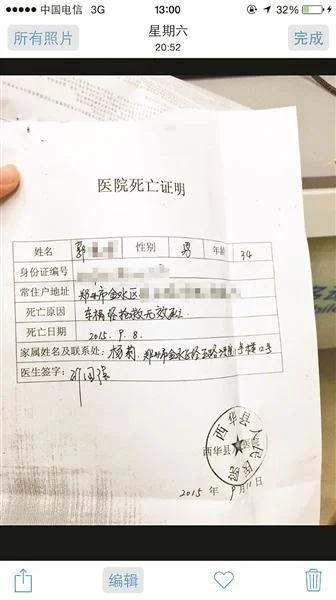 中国电信 3G 13:00 32%
所有照片 星期六 完成
20:52
医院死亡证明
姓名 郭 性别 男 年龄 34
身份证编号
常住户地址 郑州市金水区
死亡原因 车祸经抢救无效死亡
死亡日期 2015.9.8.
家属姓名及联系处: 杨莉. 郑州市金水区经五路 号楼12号
医生签字:
西华县人民医院
西华县 医院
2015 年 9月11日
编辑